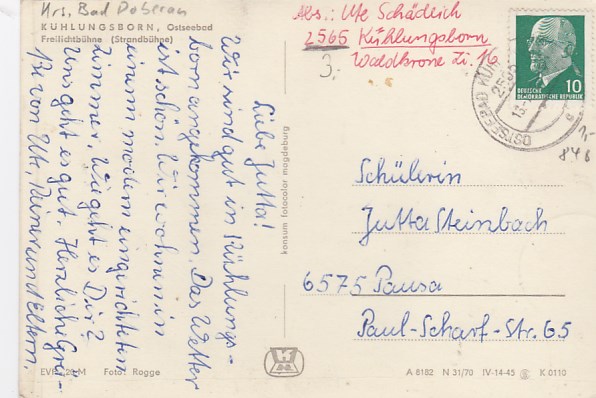 Krs. Bad Doberan
KÜHLUNGSBORN, Ostseebad
Freilichtbühne (Strandbühne)
Liebe Jutta!
Wir sind gut in Kühlungs-
born angekommen. Das Wetter
ist schön. Wir wohnen in
einem modern eingerichteten
Zimmer. Wie geht es Dir?
Uns geht es gut. Herzliche Grü-
ße von Ute und Eltern.
EVP -,20 M Foto: Rogge
konsum fotocolor magdeburg
Abs.: Ute Schädlich
2565 Kühlungsborn
Waldkrone Zi. 16
3,-
DEUTSCHE
DEMOKRATISCHE REPUBLIK
10
2565
OSTSEEBAD
1,-
Schülerin
Jutta Steinbach
6575 Pausa
Paul-Scharf-Str. 65
A 8182 N 31/70 IV-14-45 K 0110